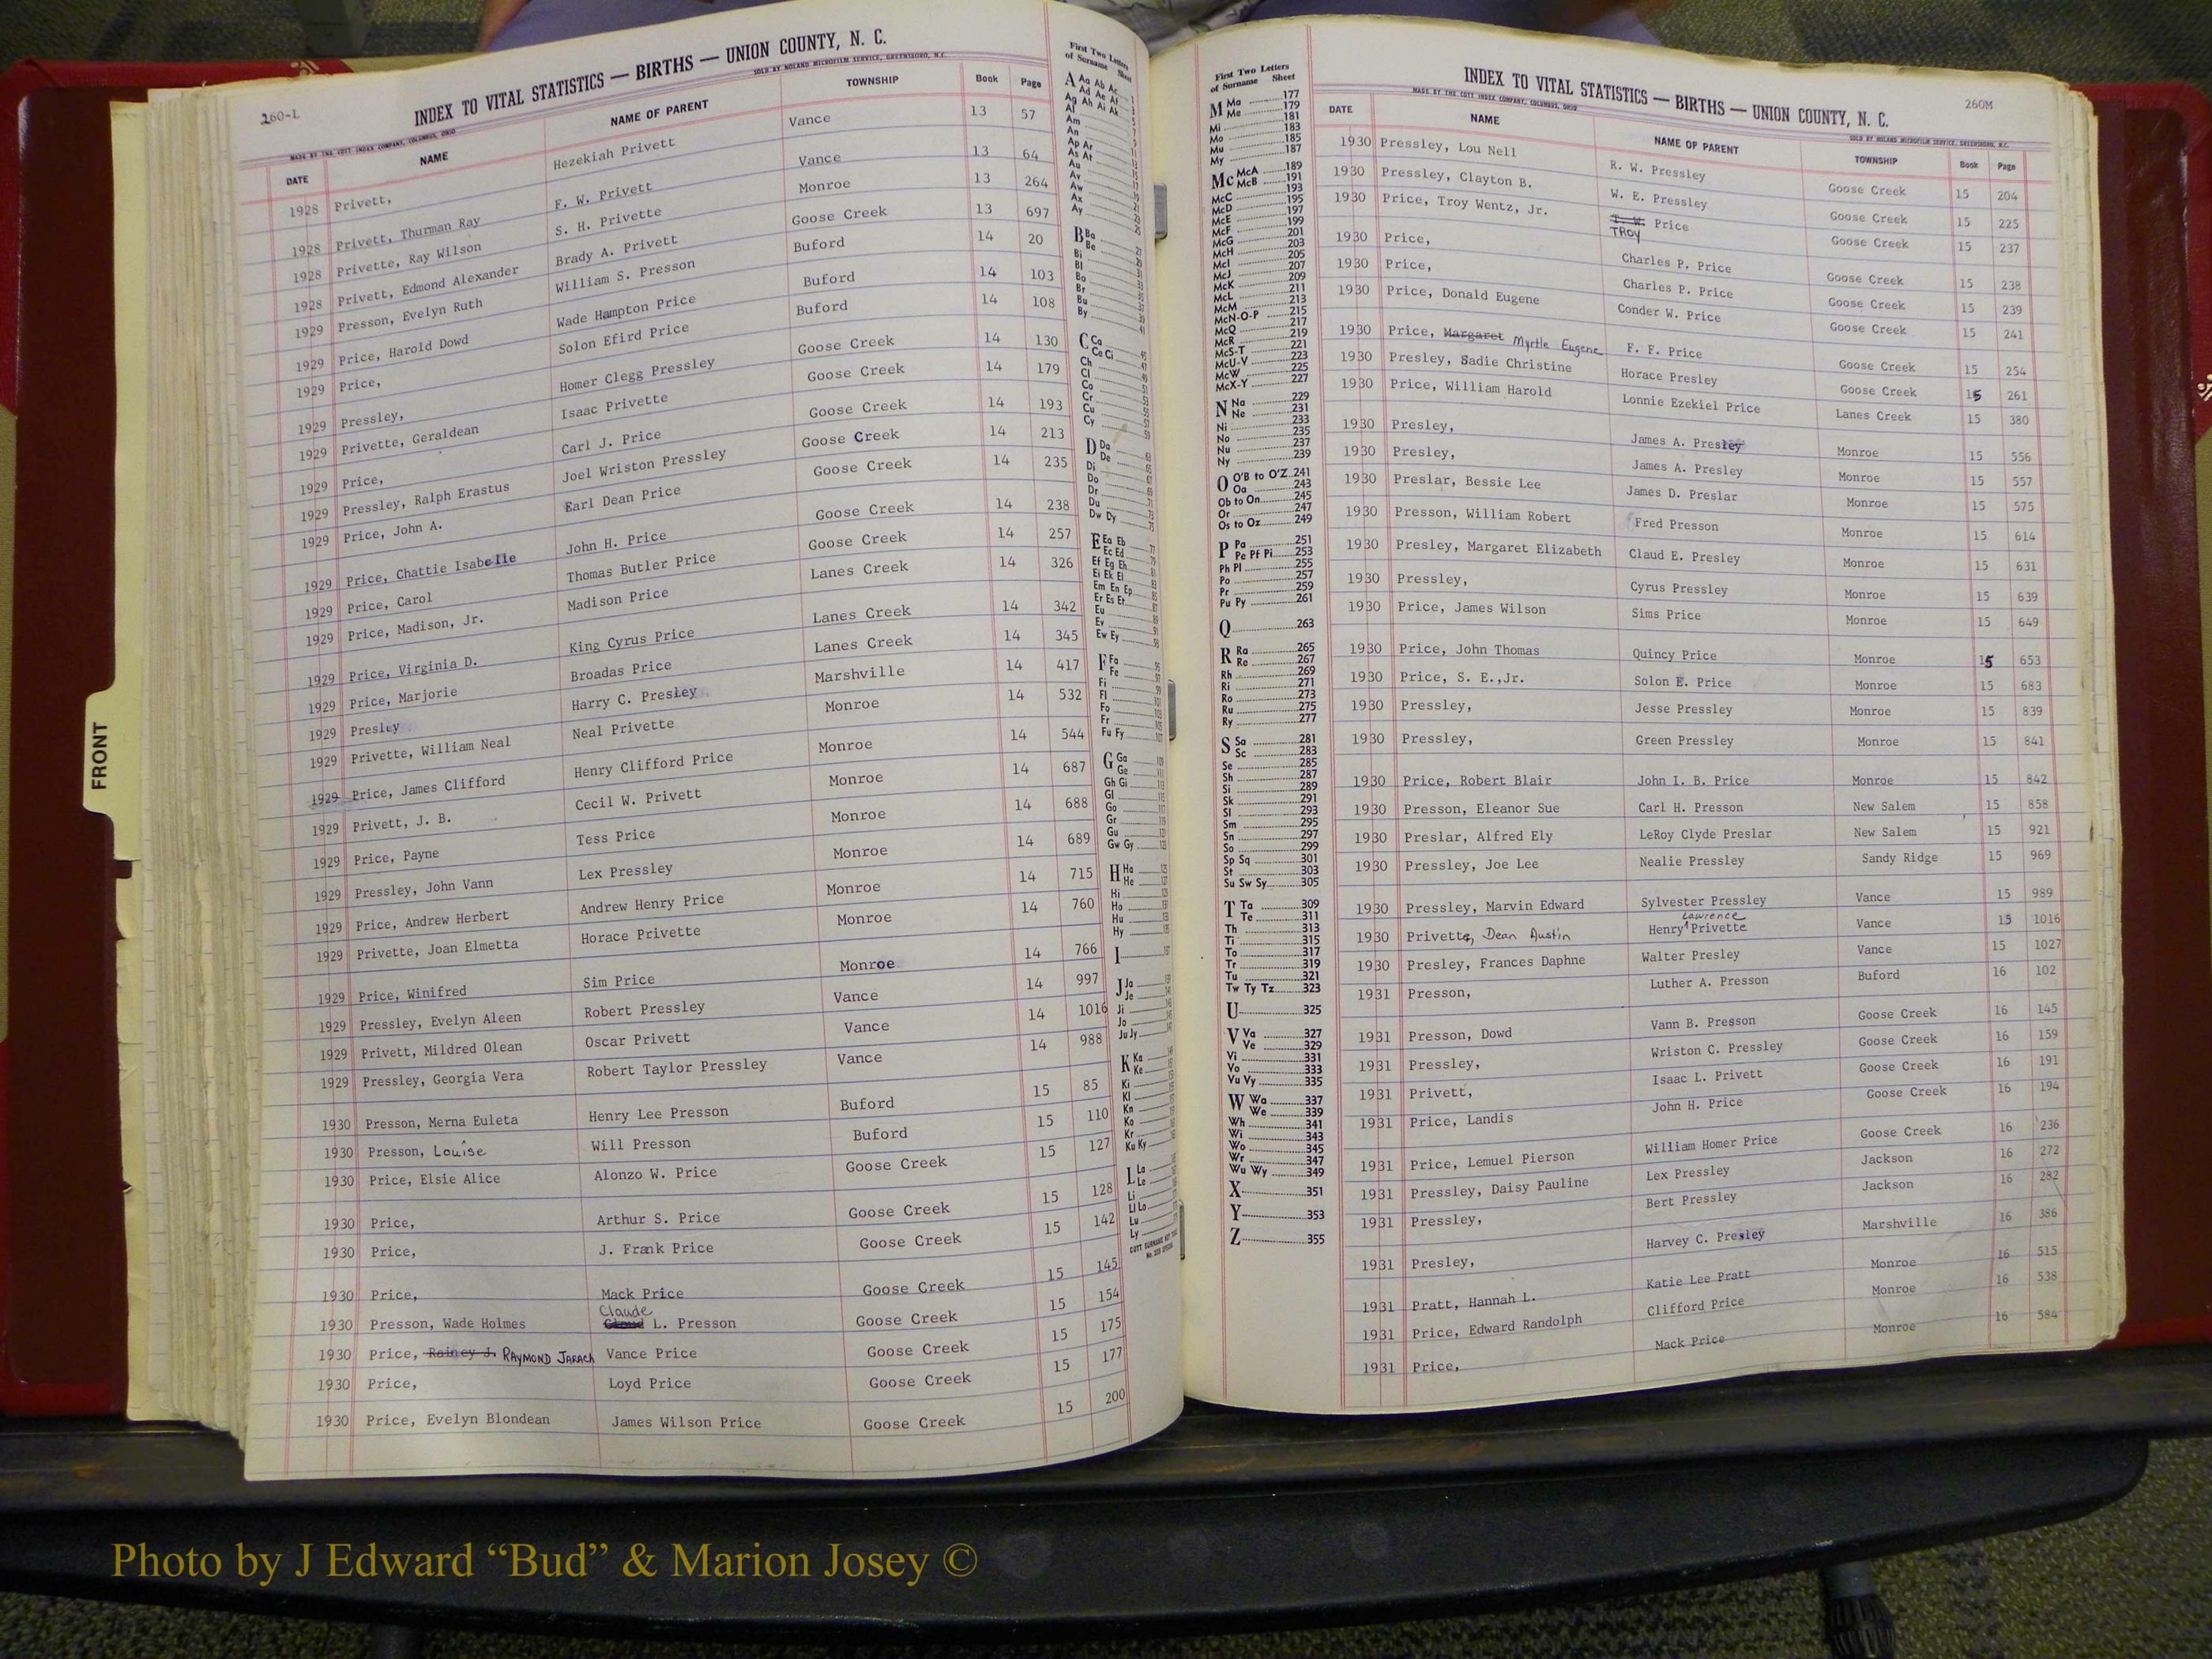 260-L
INDEX TO VITAL STATISTICS — BIRTHS — UNION COUNTY, N. C.
MADE BY THE COTT INDEX COMPANY, COLUMBUS, OHIO SOLD BY NOLAND MICROFILM SERVICE, GREENSBORO, N.C.
DATE NAME NAME OF PARENT TOWNSHIP Book Page
1928 Privett, Hezekiah Privett Vance 13 57
1928 Privett, Thurman Ray F. W. Privett Vance 13 64
1928 Privette, Ray Wilson S. H. Privette Monroe 13 264
1928 Privett, Edmond Alexander Brady A. Privett Goose Creek 13 697
1929 Presson, Evelyn Ruth William S. Presson Buford 14 20
1929 Price, Harold Dowd Wade Hampton Price Buford 14 103
1929 Price, Solon Efird Price Buford 14 108
1929 Pressley, Homer Clegg Pressley Goose Creek 14 130
1929 Privette, Geraldean Isaac Privette Goose Creek 14 179
1929 Price, Carl J. Price Goose Creek 14 193
1929 Pressley, Ralph Erastus Joel Wriston Pressley Goose Creek 14 213
1929 Price, John A. Earl Dean Price Goose Creek 14 235
1929 Price, Chattie Isabelle John H. Price Goose Creek 14 238
1929 Price, Carol Thomas Butler Price Goose Creek 14 257
1929 Price, Madison, Jr. Madison Price Lanes Creek 14 326
1929 Price, Virginia D. King Cyrus Price Lanes Creek 14 342
1929 Price, Marjorie Broadas Price Lanes Creek 14 345
1929 Presley Harry C. Presley Marshville 14 417
1929 Privette, William Neal Neal Privette Monroe 14 532
1929 Price, James Clifford Henry Clifford Price Monroe 14 544
1929 Privett, J. B. Cecil W. Privett Monroe 14 687
1929 Price, Payne Tess Price Monroe 14 688
1929 Pressley, John Vann Lex Pressley Monroe 14 689
1929 Price, Andrew Herbert Andrew Henry Price Monroe 14 715
1929 Privette, Joan Elmetta Horace Privette Monroe 14 760
1929 Price, Winifred Sim Price Monroe 14 766
1929 Pressley, Evelyn Aleen Robert Pressley Vance 14 997
1929 Privett, Mildred Olean Oscar Privett Vance 14 1016
1929 Pressley, Georgia Vera Robert Taylor Pressley Vance 14 988
1930 Presson, Merna Euleta Henry Lee Presson Buford 15 85
1930 Presson, Louise Will Presson Buford 15 110
1930 Price, Elsie Alice Alonzo W. Price Goose Creek 15 127
1930 Price, Arthur S. Price Goose Creek 15 128
1930 Price, J. Frank Price Goose Creek 15 142
1930 Price, Mack Price Goose Creek 15 145
Claude
1930 Presson, Wade Holmes L. Presson Goose Creek 15 154
1930 Price, Rainey J. RAYMOND JARACH Vance Price Goose Creek 15 175
1930 Price, Loyd Price Goose Creek 15 177
1930 Price, Evelyn Blondean James Wilson Price Goose Creek 15 200
First Two Letters
of Surname Sheet
A Aa Ab Ac
Ad Ae Af
Ag Ah Ai Ak
Al
Am
An
Ap Ar
As At
Au
Av
Aw
Ax
Ay
B Ba
Be
Bi
Bl
Bo
Br
Bu
By
C Ca
Ce Ci
Ch
Cl
Co
Cr
Cu
Cy
D Da
De
Di
Do
Dr
Du
Dw Dy
E Ea Eb
Ec Ed
Ef Eg Eh
Ei Ek El
Em En Ep
Er Es Et
Eu
Ev
Ew Ey
F Fa
Fe
Fi
Fl
Fo
Fr
Fu Fy
G Ga
Ge
Gh Gi
Gl
Go
Gr
Gu
Gw Gy
H Ha
He
Hi
Ho
Hu
Hy
I
J Ja
Je
Ji
Jo
Ju Jy
K Ka
Ke
Ki
Kl
Kn
Ko
Kr
Ku Ky
L La
Le
Li
Ll Lo
Lu
Ly
FRONT
First Two Letters
of Surname Sheet
M Ma 177
Me 179
181
Mi 183
Mo 185
Mu 187
My
Mc McA 189
McB 191
McC 193
McD 195
McE 197
McF 199
McG 201
McH 203
McI 205
McJ 207
McK 209
McL 211
McM 213
McN-O-P 215
McQ 217
McR 219
McS-T 221
McU-V 223
McW 225
McX-Y 227
N Na 229
Ne 231
Ni 233
No 235
Nu 237
Ny 239
O O'B to O'Z 241
Oa 243
Ob to On 245
Or 247
Os to Oz 249
P Pa 251
Pe Pf Pi 253
Ph Pl 255
Po 257
Pr 259
Pu Py 261
Q 263
R Ra 265
Re 267
Rh 269
Ri 271
Ro 273
Ru 275
Ry 277
S Sa 281
Sc 283
Se 285
Sh 287
Si 289
Sk 291
Sl 293
Sm 295
Sn 297
So 299
Sp Sq 301
St 303
Su Sw Sy 305
T Ta 309
Te 311
Th 313
Ti 315
To 317
Tr 319
Tu 321
Tw Ty Tz 323
U 325
V Va 327
Ve 329
Vi 331
Vo 333
Vu Vy 335
W Wa 337
We 339
Wh 341
Wi 343
Wo 345
Wr 347
Wu Wy 349
X 351
Y 353
Z 355
INDEX TO VITAL STATISTICS — BIRTHS — UNION COUNTY, N. C.
260M
MADE BY THE COTT INDEX COMPANY, COLUMBUS, OHIO SOLD BY NOLAND MICROFILM SERVICE, GREENSBORO, N.C.
DATE NAME NAME OF PARENT TOWNSHIP Book Page
1930 Pressley, Lou Nell R. W. Pressley Goose Creek 15 204
1930 Pressley, Clayton B. W. E. Pressley Goose Creek 15 225
1930 Price, Troy Wentz, Jr. Price Goose Creek 15 237
TROY
1930 Price, Charles P. Price Goose Creek 15 238
1930 Price, Charles P. Price Goose Creek 15 239
1930 Price, Donald Eugene Conder W. Price Goose Creek 15 241
1930 Price, Margaret Myrtle Eugene F. F. Price Goose Creek 15 254
1930 Presley, Sadie Christine Horace Presley Goose Creek 15 261
1930 Price, William Harold Lonnie Ezekiel Price Lanes Creek 15 380
1930 Presley, James A. Presley Monroe 15 556
1930 Presley, James A. Presley Monroe 15 557
1930 Preslar, Bessie Lee James D. Preslar Monroe 15 575
1930 Presson, William Robert Fred Presson Monroe 15 614
1930 Presley, Margaret Elizabeth Claud E. Presley Monroe 15 631
1930 Pressley, Cyrus Pressley Monroe 15 639
1930 Price, James Wilson Sims Price Monroe 15 649
1930 Price, John Thomas Quincy Price Monroe 15 653
1930 Price, S. E.,Jr. Solon E. Price Monroe 15 683
1930 Pressley, Jesse Pressley Monroe 15 839
1930 Pressley, Green Pressley Monroe 15 841
1930 Price, Robert Blair John I. B. Price Monroe 15 842
1930 Presson, Eleanor Sue Carl H. Presson New Salem 15 858
1930 Preslar, Alfred Ely LeRoy Clyde Preslar New Salem 15 921
1930 Pressley, Joe Lee Nealie Pressley Sandy Ridge 15 969
1930 Pressley, Marvin Edward Sylvester Pressley Vance 15 989
Lawrence
1930 Privette, Dean Austin Henry Privette Vance 15 1016
1930 Presley, Frances Daphne Walter Presley Vance 15 1027
1931 Presson, Luther A. Presson Buford 16 102
1931 Presson, Dowd Vann B. Presson Goose Creek 16 145
1931 Pressley, Wriston C. Pressley Goose Creek 16 159
1931 Privett, Isaac L. Privett Goose Creek 16 191
1931 Price, Landis John H. Price Goose Creek 16 194
1931 Price, Lemuel Pierson William Homer Price Goose Creek 16 236
1931 Pressley, Daisy Pauline Lex Pressley Jackson 16 272
1931 Pressley, Bert Pressley Jackson 16 282
1931 Presley, Harvey C. Presley Marshville 16 386
1931 Pratt, Hannah L. Katie Lee Pratt Monroe 16 515
1931 Price, Edward Randolph Clifford Price Monroe 16 538
1931 Price, Mack Price Monroe 16 584
Photo by J Edward “Bud” & Marion Josey ©